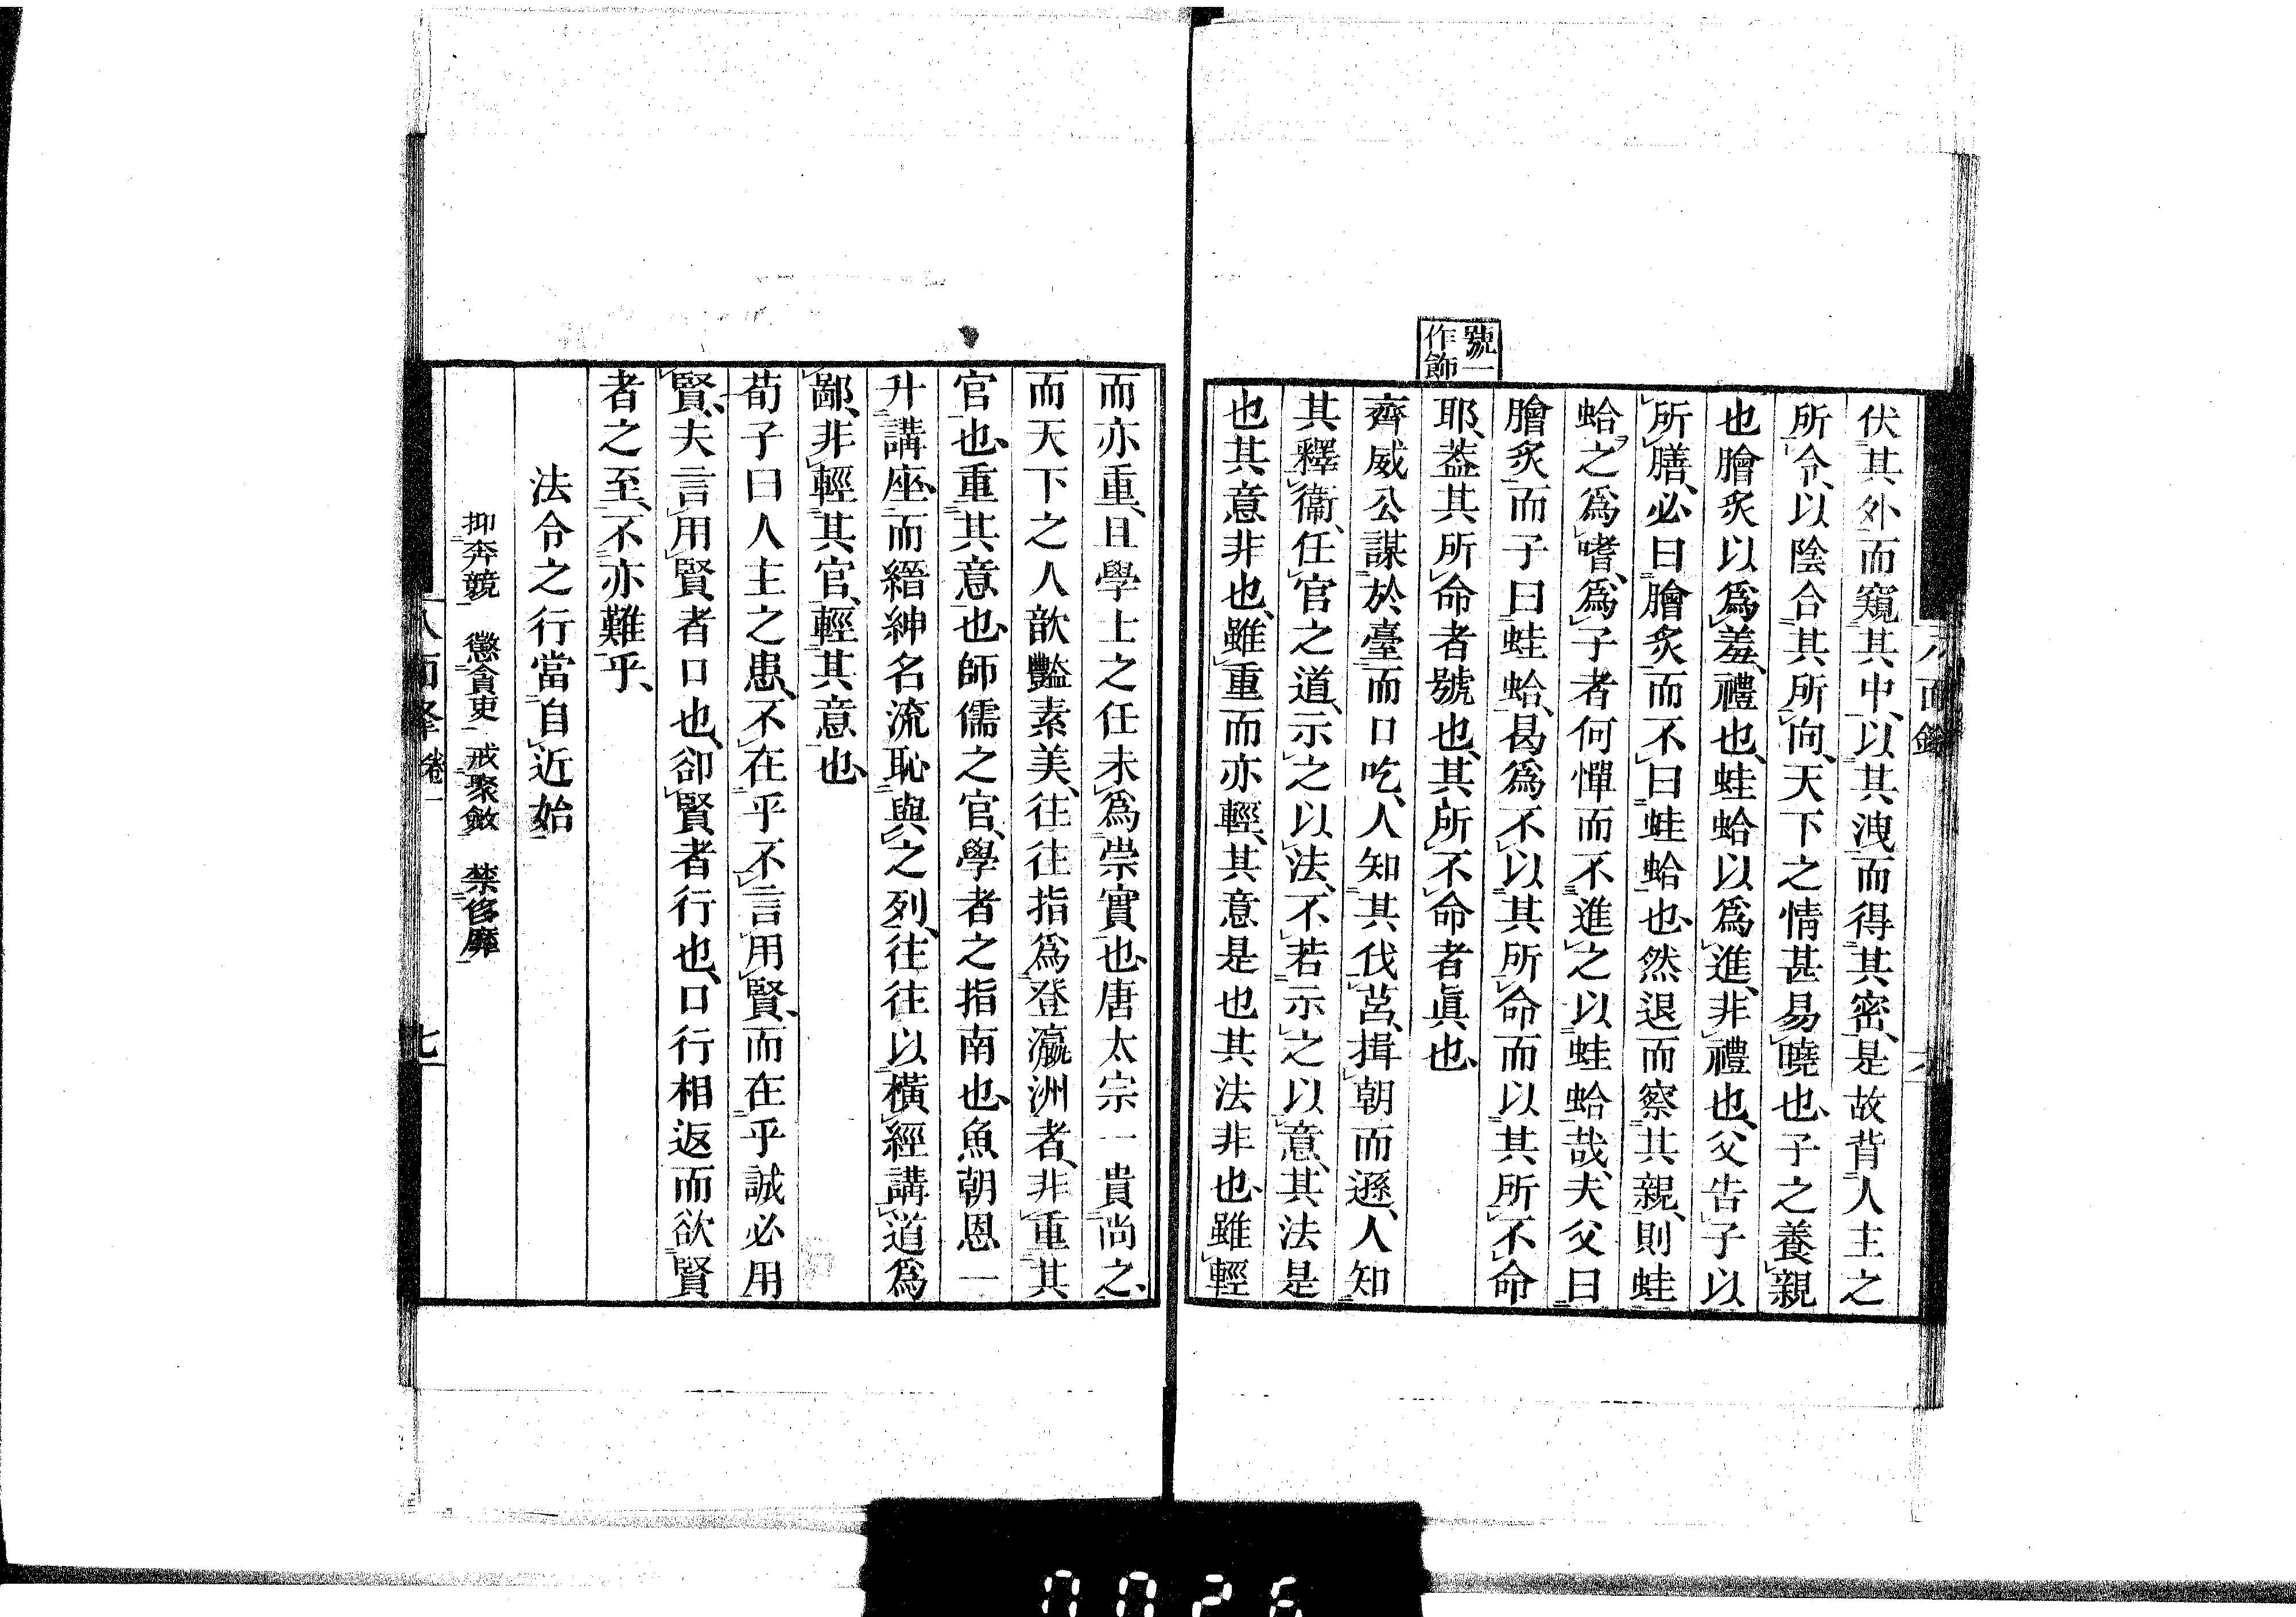 號一
作飾
伏其外而窺其中、以其洩而得其密、是故背人主之
所令、以陰合其所向、天下之情甚易曉也、子之養親
也膾炙以爲羞、禮也、蛙蛤以爲進、非禮也、父告子以
所膳、必曰膾炙而不曰蛙蛤也、然退而察其親、則蛙
蛤之爲嗜、爲子者何憚而不進之以蛙蛤哉、夫父曰
膾炙而子曰蛙蛤、曷爲不以其所命而以其所不命
耶、蓋其所命者號也、其所不命者眞也、
齊威公謀於臺而口吃、人知其伐莒、揖朝而遜、人知
其釋衞、任官之道、示之以法、不若示之以意、其法是
也其意非也、雖重而亦輕、其意是也其法非也、雖輕
而亦重、且學士之任未爲崇實也、唐太宗一貴尚之、
而天下之人歆豔素美、往往指爲登瀛洲者、非重其
官也、重其意也、師儒之官、學者之指南也、魚朝恩一
升講座、而縉紳名流恥與之列、往往以橫經講道爲
鄙、非輕其官、輕其意也、
荀子曰人主之患、不在乎不言用賢、而在乎誠必用
賢、夫言用賢者口也、卻賢者行也、口行相返而欲賢
者之至、不亦難乎、
法令之行當自近始
抑奔競 懲貪吏 戒聚斂 禁侈靡
卷一
七
0026